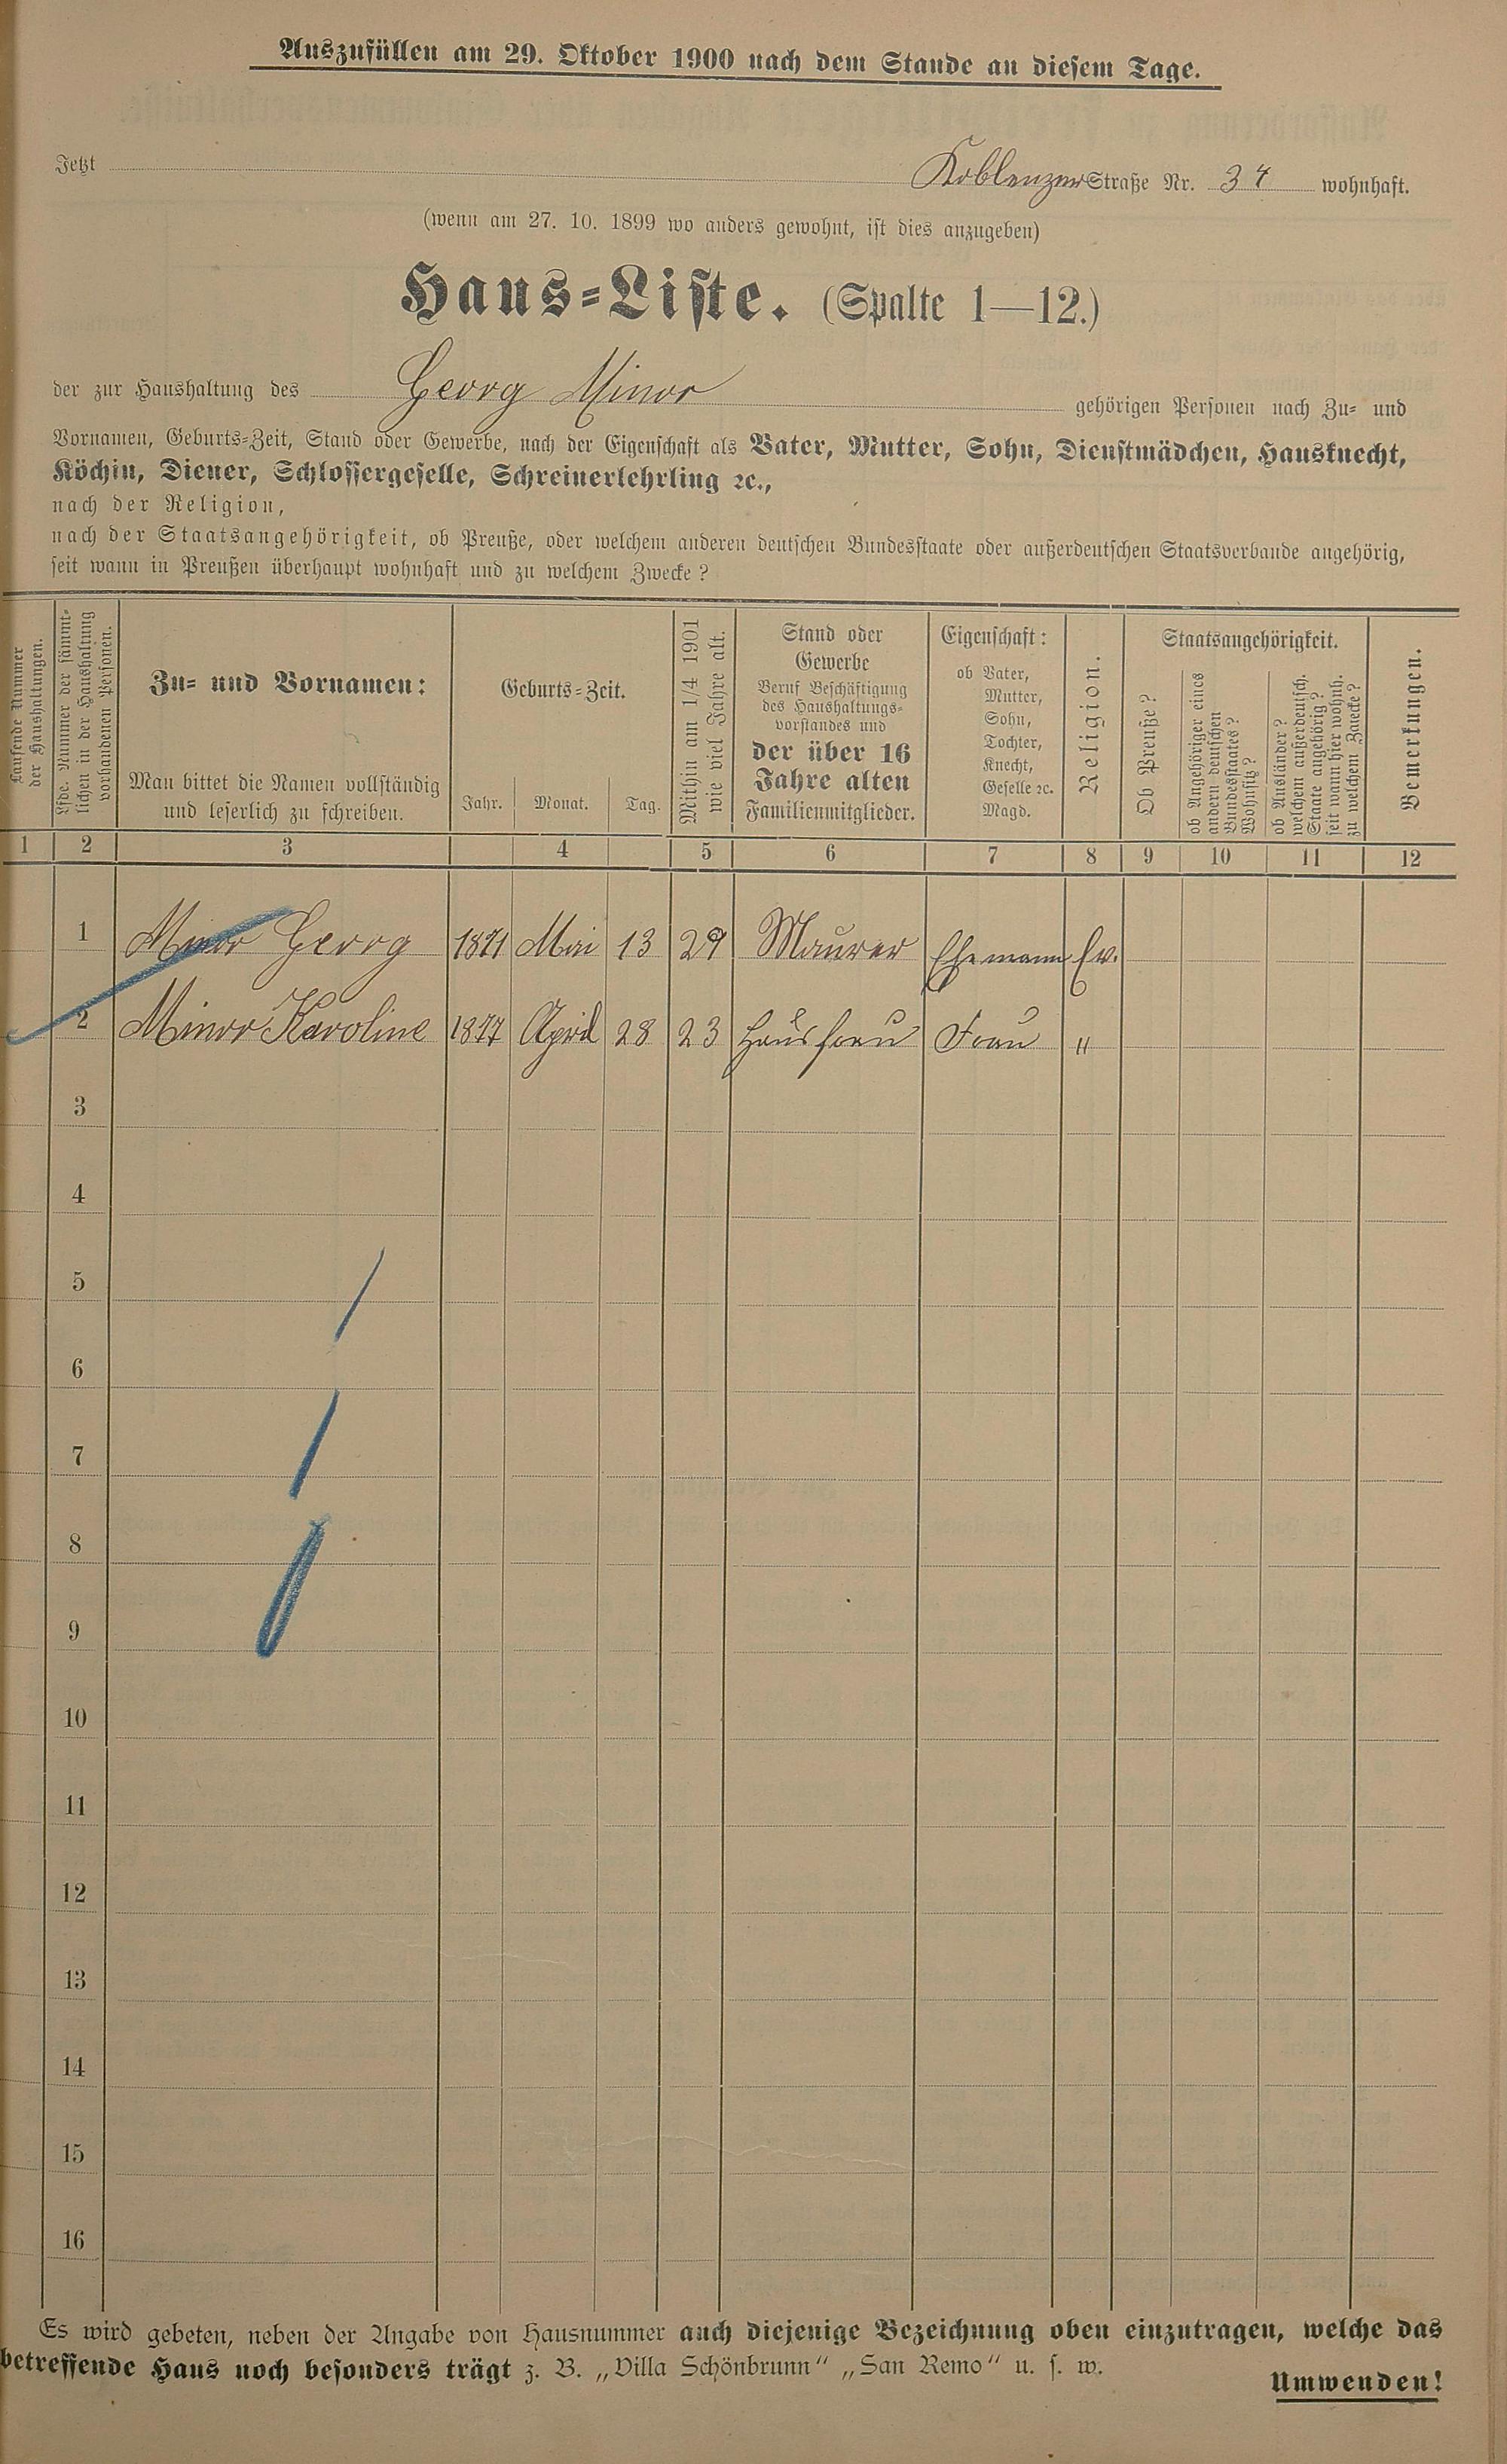 Auszufüllen am 29. Oktober 1900 nach dem Stande an diesem Tage.
Jetzt Koblenzer Straße Nr. 34 wohnhaft.
(wenn am 27. 10. 1899 wo anders gewohnt, ist dies anzugeben)
Haus-Liste. (Spalte 1—12.)
der zur Haushaltung des Georg Minor gehörigen Personen nach Zu- und
Vornamen, Geburts-Zeit, Stand oder Gewerbe, nach der Eigenschaft als Vater, Mutter, Sohn, Dienstmädchen, Hausknecht,
Köchin, Diener, Schlossergeselle, Schreinerlehrling ꝛc.,
nach der Religion,
nach der Staatsangehörigkeit, ob Preuße, oder welchem anderen deutschen Bundesstaate oder außerdeutschen Staatsverbande angehörig,
seit wann in Preußen überhaupt wohnhaft und zu welchem Zwecke?
Laufende Nummer
der Haushaltungen.
Lfde. Nummer der sämmt-
lichen in der Haushaltung
vorhandenen Personen.
Zu- und Vornamen:
Man bittet die Namen vollständig
und leserlich zu schreiben.
Geburts-Zeit.
Jahr. Monat. Tag.
Mithin am 1/4 1901
wie viel Jahre alt.
Stand oder
Gewerbe
Beruf Beschäftigung
des Haushaltungs-
vorstandes und
der über 16
Jahre alten
Familienmitglieder.
Eigenschaft:
ob Vater,
Mutter,
Sohn,
Tochter,
Knecht,
Geselle ꝛc.
Magd.
Religion.
Staatsangehörigkeit.
Ob Preuße?
ob Angehöriger eines
andern deutschen
Bundesstaates?
Wohnsitz?
ob Ausländer?
welchem außerdeutsch.
Staate angehörig?
seit wann hier wohnh.
zu welchem Zwecke?
Bemerkungen.
1 2 3 4 5 6 7 8 9 10 11 12
1 Minor Georg 1871 Mai 13 29 Maurer Ehemann Ev.
2 Minor Karoline 1877 April 28 23 Hausfrau Frau "
3
4
5
6
7
8
9
10
11
12
13
14
15
16
Es wird gebeten, neben der Angabe von Hausnummer auch diejenige Bezeichnung oben einzutragen, welche das
betreffende Haus noch besonders trägt z. B. „Villa Schönbrunn“ „San Remo“ u. s. w.
Umwenden!